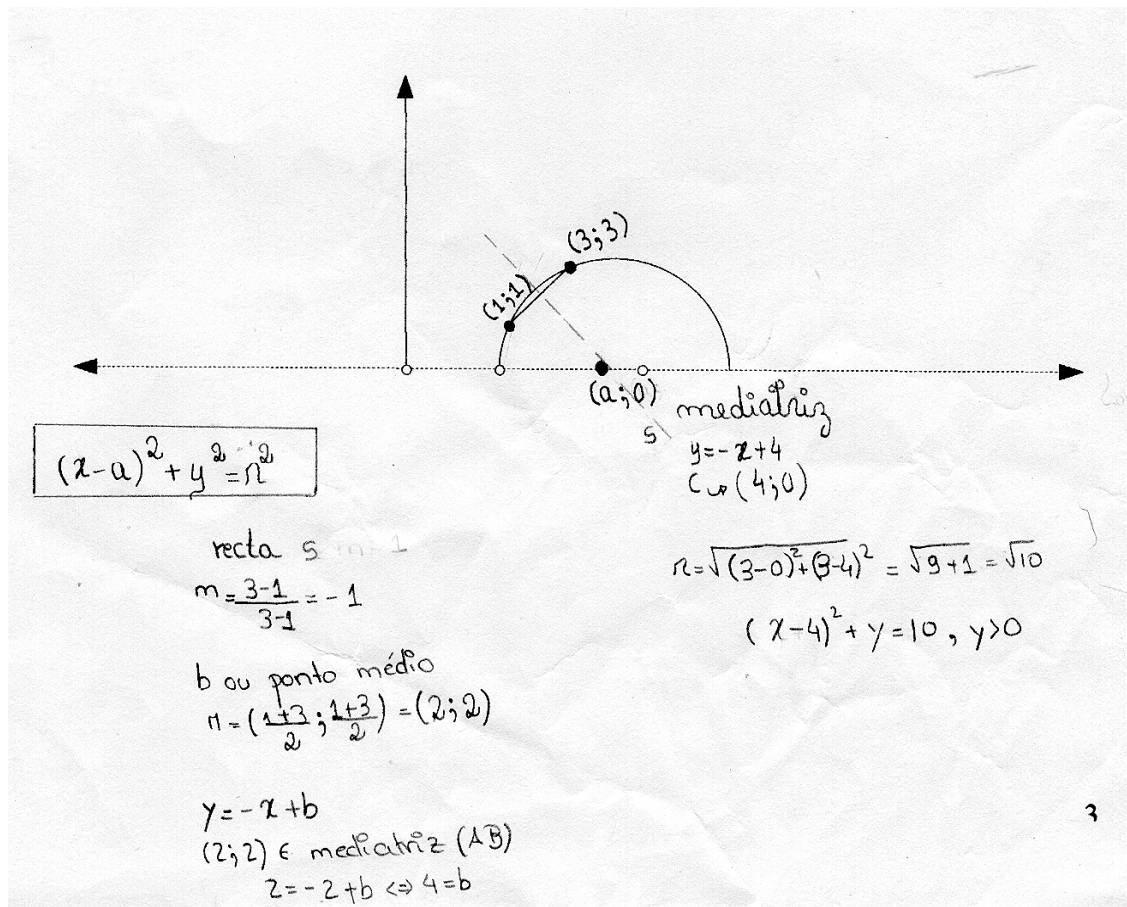 (3;3)
(1;1)
(a;0)
s
mediatriz
y=-x+4
C ↝ (4;0)
(x-a)²+y²=r²
recta s m=1
m=\frac{3-1}{3-1}=-1
b ou ponto médio
M=(\frac{1+3}{2};\frac{1+3}{2})=(2;2)
y=-x+b
(2;2) ∈ mediatriz (AB)
2=-2+b <=> 4=b
r=√((3-0)²+(3-4)²)=√(9+1)=√10
(x-4)²+y=10, y>0
3